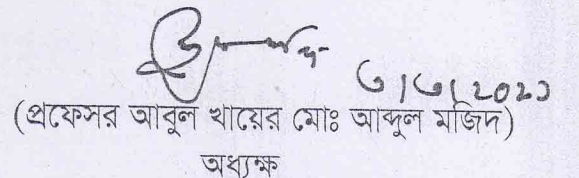 ৩।৩।২০২১
(প্রফেসর আবুল খায়ের মোঃ আব্দুল মজিদ)
অধ্যক্ষ